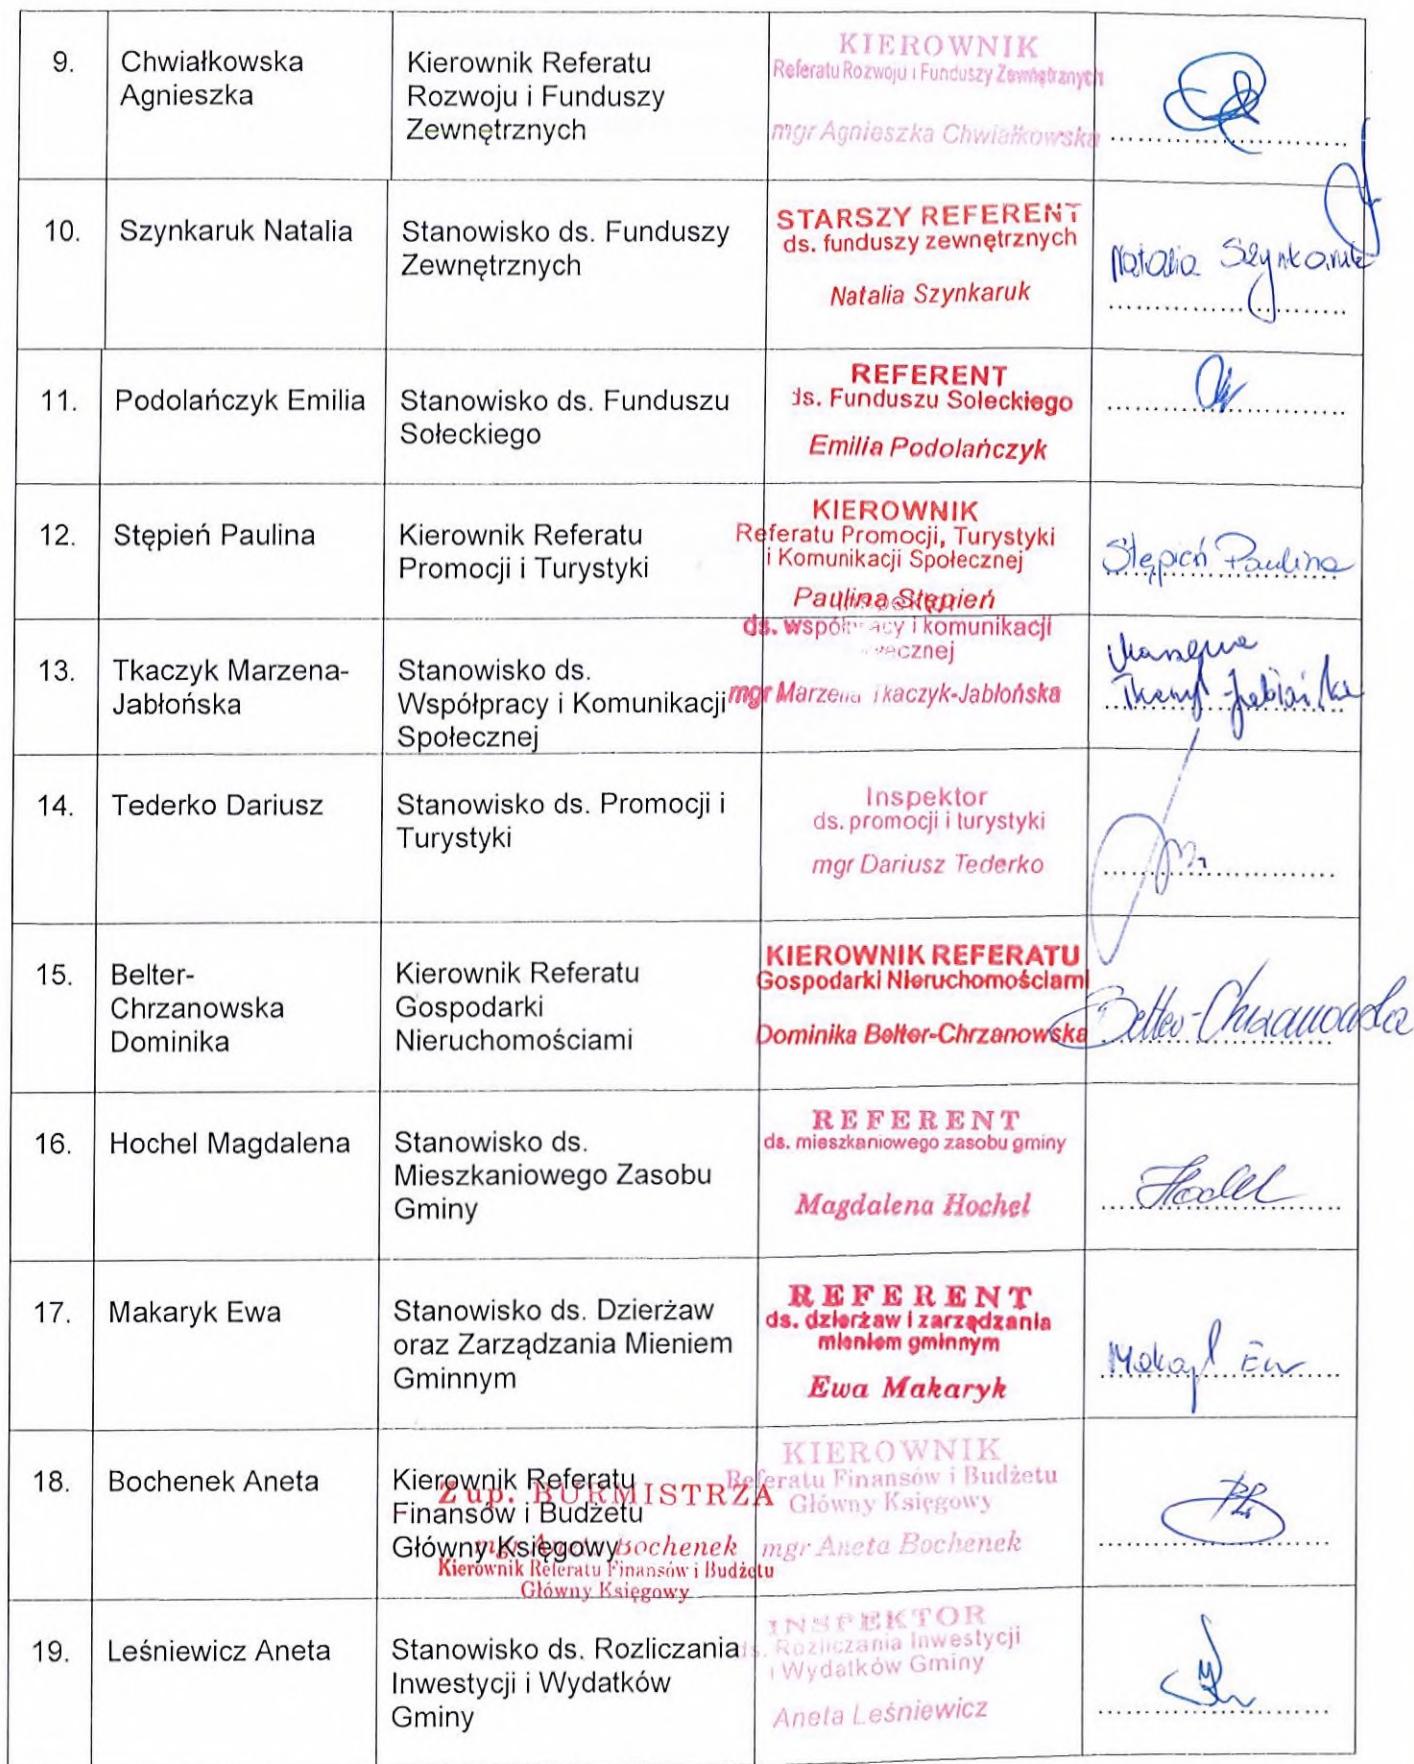 9.
Chwiałkowska
Agnieszka
Kierownik Referatu
Rozwoju i Funduszy
Zewnętrznych
KIEROWNIK
Referatu Rozwoju i Funduszy Zewnętrznych
mgr Agnieszka Chwiałkowska
10.
Szynkaruk Natalia
Stanowisko ds. Funduszy
Zewnętrznych
STARSZY REFERENT
ds. funduszy zewnętrznych
Natalia Szynkaruk
Natalia Szynkaruk
11.
Podolańczyk Emilia
Stanowisko ds. Funduszu
Sołeckiego
REFERENT
ds. Funduszu Sołeckiego
Emilia Podolańczyk
12.
Stępień Paulina
Kierownik Referatu
Promocji i Turystyki
KIEROWNIK
Referatu Promocji, Turystyki
i Komunikacji Społecznej
Paulina Stępień
Stępień Paulina
13.
Tkaczyk Marzena-
Jabłońska
Stanowisko ds.
Współpracy i Komunikacji
Społecznej
ds. współpracy i komunikacji
mgr Marzena Tkaczyk-Jabłońska
Marzena
Tkaczyk-Jabłońska
14.
Tederko Dariusz
Stanowisko ds. Promocji i
Turystyki
Inspektor
ds. promocji i turystyki
mgr Dariusz Tederko
15.
Belter-
Chrzanowska
Dominika
Kierownik Referatu
Gospodarki
Nieruchomościami
KIEROWNIK REFERATU
Gospodarki Nieruchomościami
Dominika Belter-Chrzanowska
Belter-Chrzanowska
16.
Hochel Magdalena
Stanowisko ds.
Mieszkaniowego Zasobu
Gminy
REFERENT
ds. mieszkaniowego zasobu gminy
Magdalena Hochel
Hochel
17.
Makaryk Ewa
Stanowisko ds. Dzierżaw
oraz Zarządzania Mieniem
Gminnym
REFERENT
ds. dzierżaw i zarządzania
mieniem gminnym
Ewa Makaryk
Makaryk Ewa
18.
Bochenek Aneta
Kierownik Referatu
Finansów i Budżetu
Główny Księgowy
Z up. BURMISTRZA
mgr Aneta Bochenek
Kierownik Referatu Finansów i Budżetu
Główny Księgowy
KIEROWNIK
Referatu Finansów i Budżetu
Główny Księgowy
mgr Aneta Bochenek
19.
Leśniewicz Aneta
Stanowisko ds. Rozliczania
Inwestycji i Wydatków
Gminy
INSPEKTOR
ds. Rozliczania Inwestycji
i Wydatków Gminy
Aneta Leśniewicz